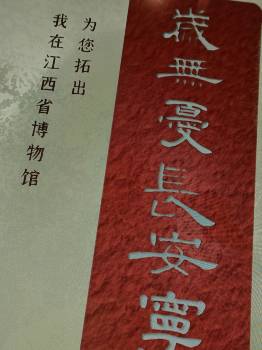 歲無憂長安寧
为您拓出
我在江西省博物馆